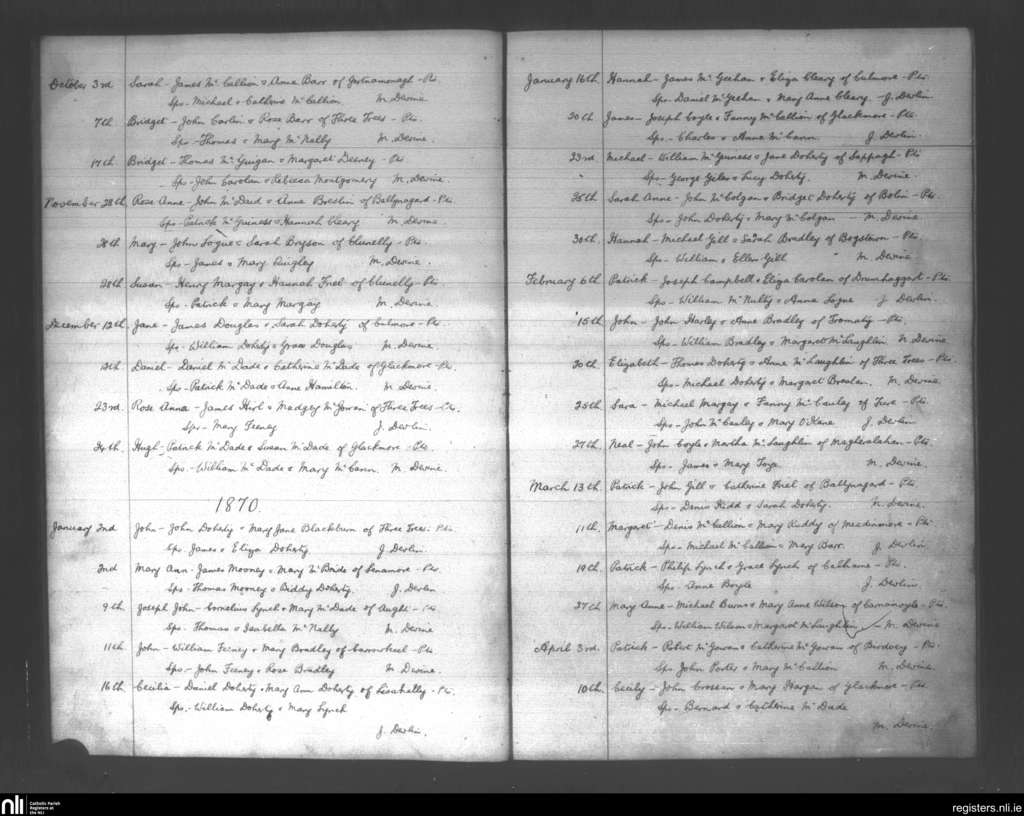 October 3rd. Sarah - James McCallion & Anne Barr of Gortnamonagh - Pts.
Sps - Michael & Catherine McCallion. M. Devine
7th. Bridget - John Carlin & Rose Barr of Three Trees - Pts.
Sps - Thomas & Mary McNally M. Devine.
17th. Bridget - Thomas McGuigan & Margaret Deeney - Pts
Sps - John Carolan & Rebecca Montgomery M. Devine.
November 28th. Rose Anne - John McDaid & Anne Breslin of Ballynagard - Pts.
Sps - Patrick McGuiness & Hannah Cleary M. Devine.
28th. Mary - John Logue & Sarah Bryson of Clunelly - Pts.
Sps - James & Mary Quigley M. Devine.
28th. Susan - Henry Margay & Hannah Friel of Clunelly - Pts
Sps - Patrick & Mary Margay M. Devine.
December 12th. Jane - James Douglas & Sarah Doherty of Culmore - Pts.
Sps. William Doherty & Grace Douglas M. Devine.
Daniel - Daniel McDade & Catherine McDade of Glackmore - Pts.
Sps - Patrick McDade & Anne Hamilton. M. Devine.
23rd. Rose Anna - James Hirl & Madgey McGowan of Three Trees - Pts.
Sps - Mary Feeney J. Devlin.
Hugh - Patrick McDade & Susan McDade of Glackmore - Pts
Sps. - William McDade & Mary McCann M. Devine.
1870.
January 2nd John - John Doherty & Mary Jane Blackburn of Three Trees. Pts.
Sps. James & Eliza Doherty. J. Devlin.
2nd Mary Ann - James Mooney & Mary McBride of Lenamore - Pts.
Sps - Thomas Mooney & Biddy Doherty. J. Devlin
9th. Joseph John - Cornelius Lynch & Mary McDade of Aught - Pts
Sps. Thomas & Isabella McNally M. Devine
11th. John - William Feeney & Mary Bradley of Carrowkeel - Pts
Sps - John Feeney & Rose Bradley M. Devine.
16th. Cecilia - Daniel Doherty & Mary Ann Doherty of Lisahally - Pts.
Sps. - William Doherty & Mary Lynch
J. Devlin.
January 16th. Hannah - James McGeehan & Eliza Cleary of Culmore - Pts.
Sps. Daniel McGeehan & Mary Anne Cleary - J. Devlin
20th. James - Joseph Coyle & Fanny McCallion of Glackmore - Pts.
Sps - Charles & Anne McCann. J. Devlin.
23rd. Michael - William McGuiness & Jane Doherty of Sappagh - Pts
Sps - George Giles & Lucy Doherty. M. Devine.
25th. Sarah Anne - John McColgan & Bridget Doherty of Bolin - Pts.
Sps - John Doherty & Mary McColgan - M. Devine.
30th. Hannah - Michael Gill & Sarah Bradley of Bogstown - Pts.
Sps - William & Ellen Gill M. Devine.
February 6th. Patrick - Joseph Campbell & Eliza Carolan of Drumhaggart - Pts.
Sps - William McNulty & Anna Logue J. Devlin.
15th. John - John Harley & Anne Bradley of Tromaty - Pts.
Sps - William Bradley & Margaret McLaughlin M Devine.
20th. Elizabeth - Thomas Doherty & Anne McLaughlin of Three Trees - Pts.
Sps - Michael Doherty & Margaret Breslin. M. Devine.
25th. Sara - Michael Margay & Fanny McCauley of Ture - Pts.
Sps - John McCauley & Mary O'Kane J. Devlin
27th. Neal - John Coyle & Martha McLaughlin of Magheralahan - Pts.
Sps - James & Mary Toye M. Devine.
March 13th. Patrick - John Gill & Catherine Friel of Ballynagard - Pts
Sps - Denis Kidd & Sarah Doherty. M. Devine.
11th. Margaret - Denis McCallion & Mary Ruddy of Meedanmore - Pts
Sps - Michael McCallion & Mary Barr. J. Devlin
19th. Patrick - Philip Lynch & Grace Lynch of - Pts.
Sps. Anne Boyle J. Devlin
27th Mary Anne - Michael Burns & Mary Anne Wilson of Carnamoyle - Pts.
Sps - William Wilson & Margaret McLaughlin - M. Devine
April 3rd. Patrick - Robert McGowan & Catherine McGowan of Birdstown - Pts
Sps John Porter & Mary McCallion M. Devine.
10th. Cecily - John Crossan & Mary Hargan of Glackmore - Pts
Sps - Bernard & Catherine McDade
M. Devine
nli
Catholic Parish
Registers at
the NLI
registers.nli.ie